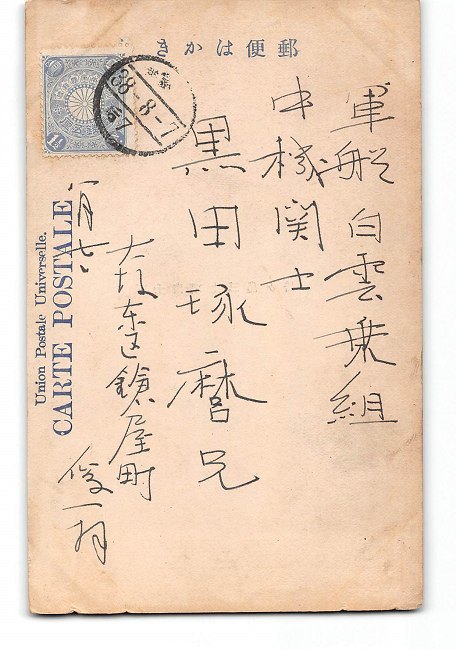 郵便はかき
軍艦白雲乗組
中機関士
黒田琢磨兄
大阪東区鎗屋町
俊一拝
Union Postale Universelle.
CARTE POSTALE
38-8-7